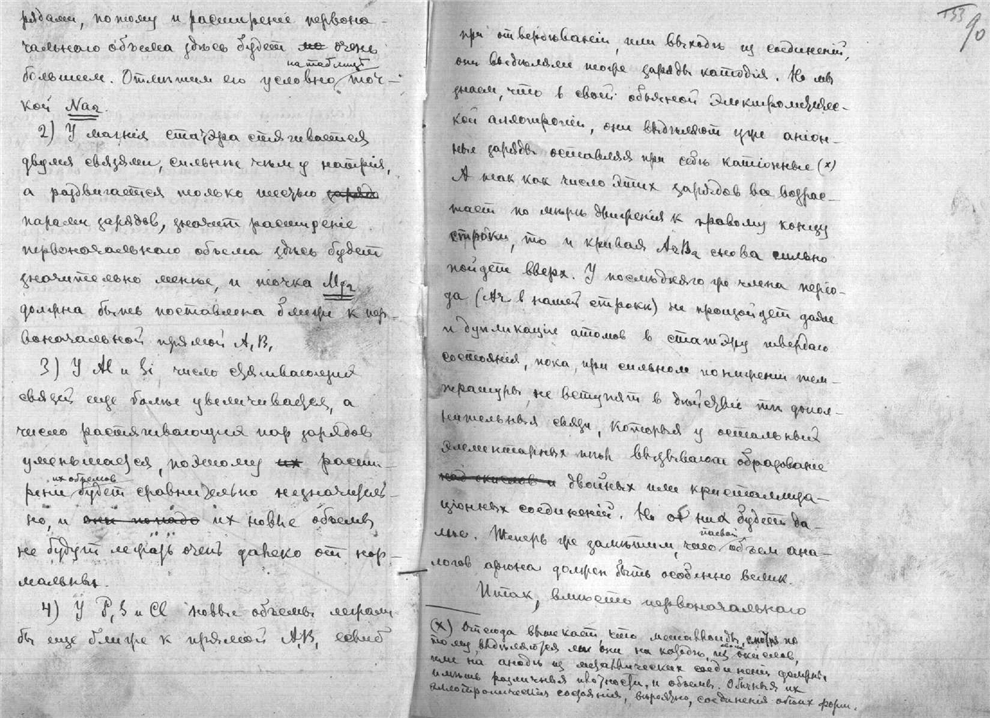 рядами, потому и расширенiе первона-
чальнаго объема здѣсь будетъ очень
большимъ. Отмѣтимъ его условно на таблицѣ точ-
кой Na₂.
2) У магнiя статэра стягивается
двумя связями, сильнѣе чѣмъ у натрiя,
а раздвигается только шестью заряд
парами зарядовъ, значитъ расширенiе
первоначальнаго объема здѣсь будетъ
значительно менѣе, и точка Mg₂
должна быть поставлена ближе к пер-
воначальной прямой A₁B₁
3) У Al и Si число стягивающихъ
связей еще болѣе увеличивается, а
число растягивающихъ паръ зарядовъ
уменьшается, поэтому их расши-
ренiе ихъ объемовъ будетъ сравнительно незначитель-
но, и ихъ новые объемы
не будутъ лежать очень далеко отъ нор-
мальныхъ.
4) У P, S и Cl новые объемы лежали
бы еще ближе к прямой A₁B₁
133
90
при отвердѣванiи или выходѣ изъ соединенiй,
они выдѣляли тоже заряды катодiя. Но мы
знаемъ, что в своей обычной электролитичес-
кой аллотропiи, они выдѣляютъ уже анiон-
ные заряды оставляя при себѣ катiонные (x)
А такъ какъ число этихъ зарядовъ все возрас-
таетъ по мѣрѣ движенiя к правому концу
строки, то и кривая A₂B₂ снова сильно
пойдетъ вверх. У послѣдняго же члена перiо-
да (Ar в нашей строкѣ) не произойдетъ даже
и дупликацiи атомовъ в статэру твердаго
состоянiя, пока, при сильномъ пониженiи тем-
пературы, не вступятъ в дѣйствiе тѣ допол-
нительныя связи, которыя у остальныхъ
элементарныхъ вызываютъ образованiе
двойныхъ или кристаллиза-
цiонныхъ соединенiй. Но об нихъ будетъ да-
лѣе. Теперь же замѣтимъ, что паевой объем ана-
логовъ аргона долженъ быть особенно великъ.
Итакъ, вмѣсто первоначальнаго
(x) Отсюда вытекаетъ что металлоиды, смотря по
тому выдѣляются ли они на катодѣ, изъ окисловъ,
или на анодѣ изъ металлическихъ соединенiй должны
имѣть различныя плотности, и объемы. Обычныя их
аллотропическiя состоянiя, вѣроятно, соединенiя обоихъ формъ.